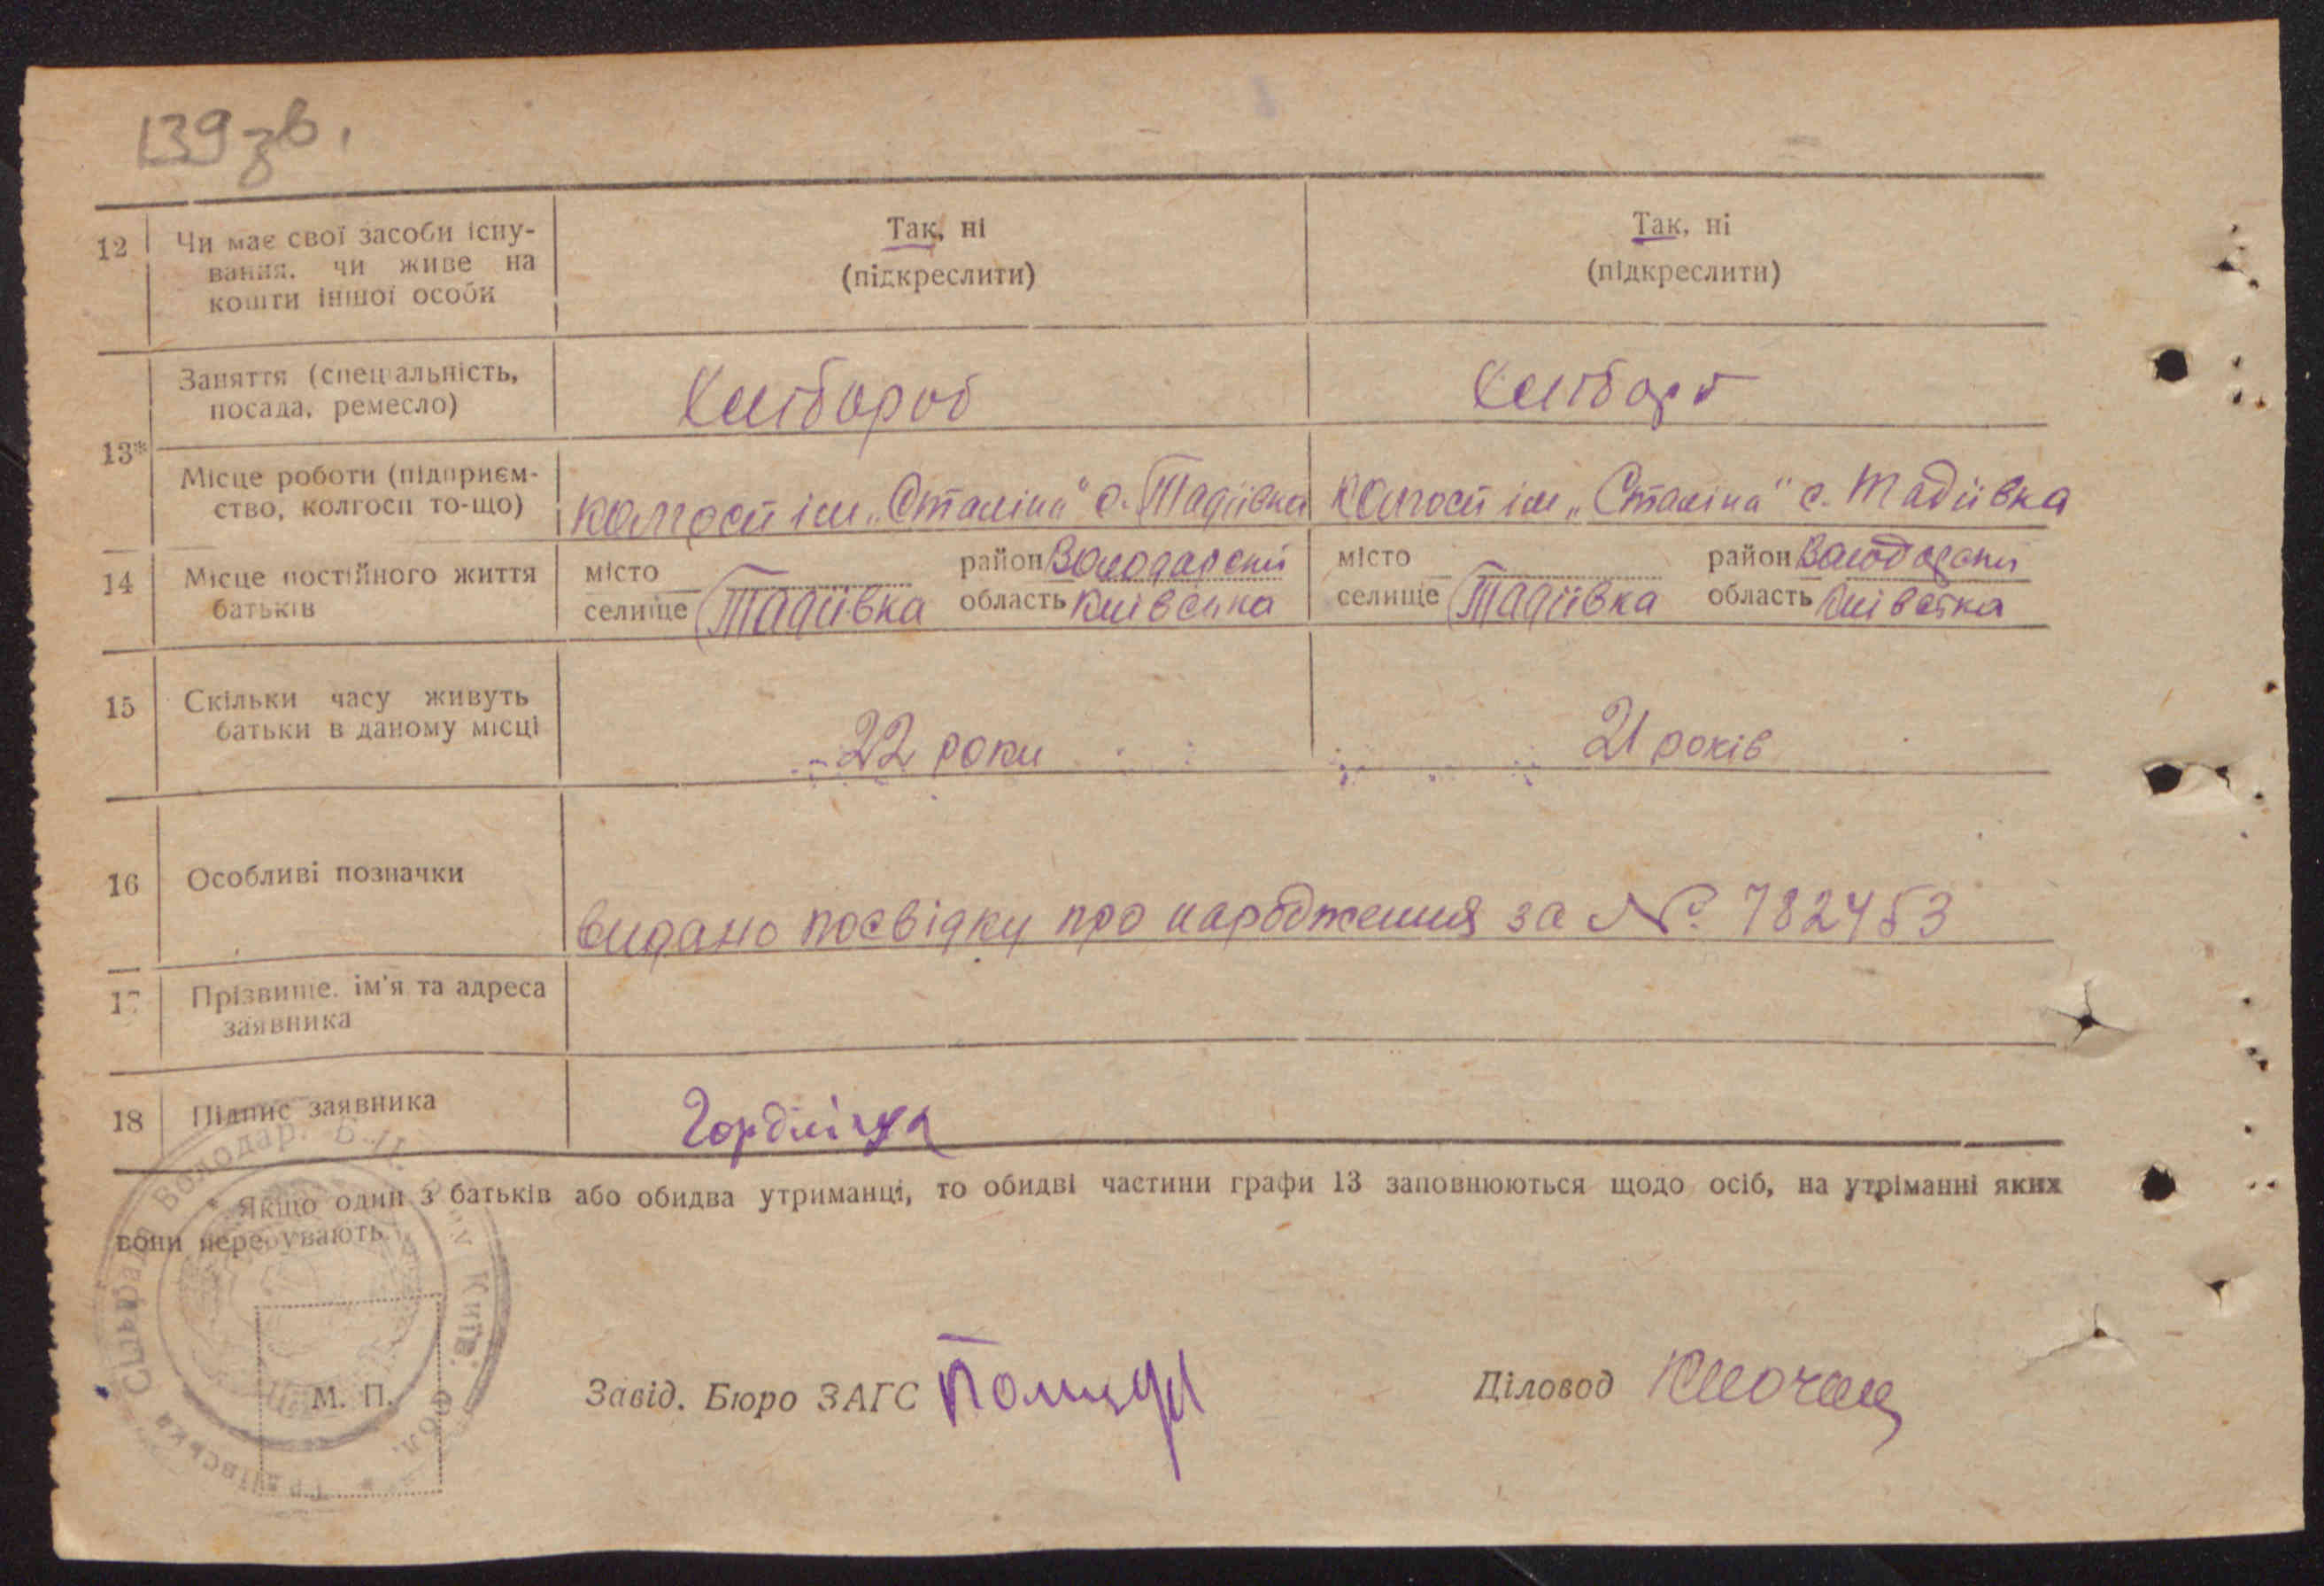 139 зв.
12 Чи має свої засоби існу- Так, ні Так, ні
вання, чи живе на (підкреслити) (підкреслити)
кошти іншої особи
Заняття (спеціальність, Хлібороб Хлібороб
посада, ремесло)
13*
Місце роботи (підприєм-
ство, колгосп то-що) колгосп ім „Сталіна" с. Тадіївка колгосп ім „Сталіна" с. Тадіївка
14 Місце постійного життя місто район Володарский місто район Володарский
батьків селище Тадіївка область Київська селище Тадіївка область Київська
15 Скільки часу живуть
батьки в даному місці 22 роки 21 років
16 Особливі позначки
видано посвідку про народження за №. 782453
17 Прізвище, ім'я та адреса
заявника
18 Підпис заявника
Якщо один з батьків або обидва утриманці, то обидві частини графи 13 заповнюються щодо осіб, на утріманні яких
вони перебувають.
Завід. Бюро ЗАГС Діловод
М. П.
Сільрада Володар. Київ. Обл.